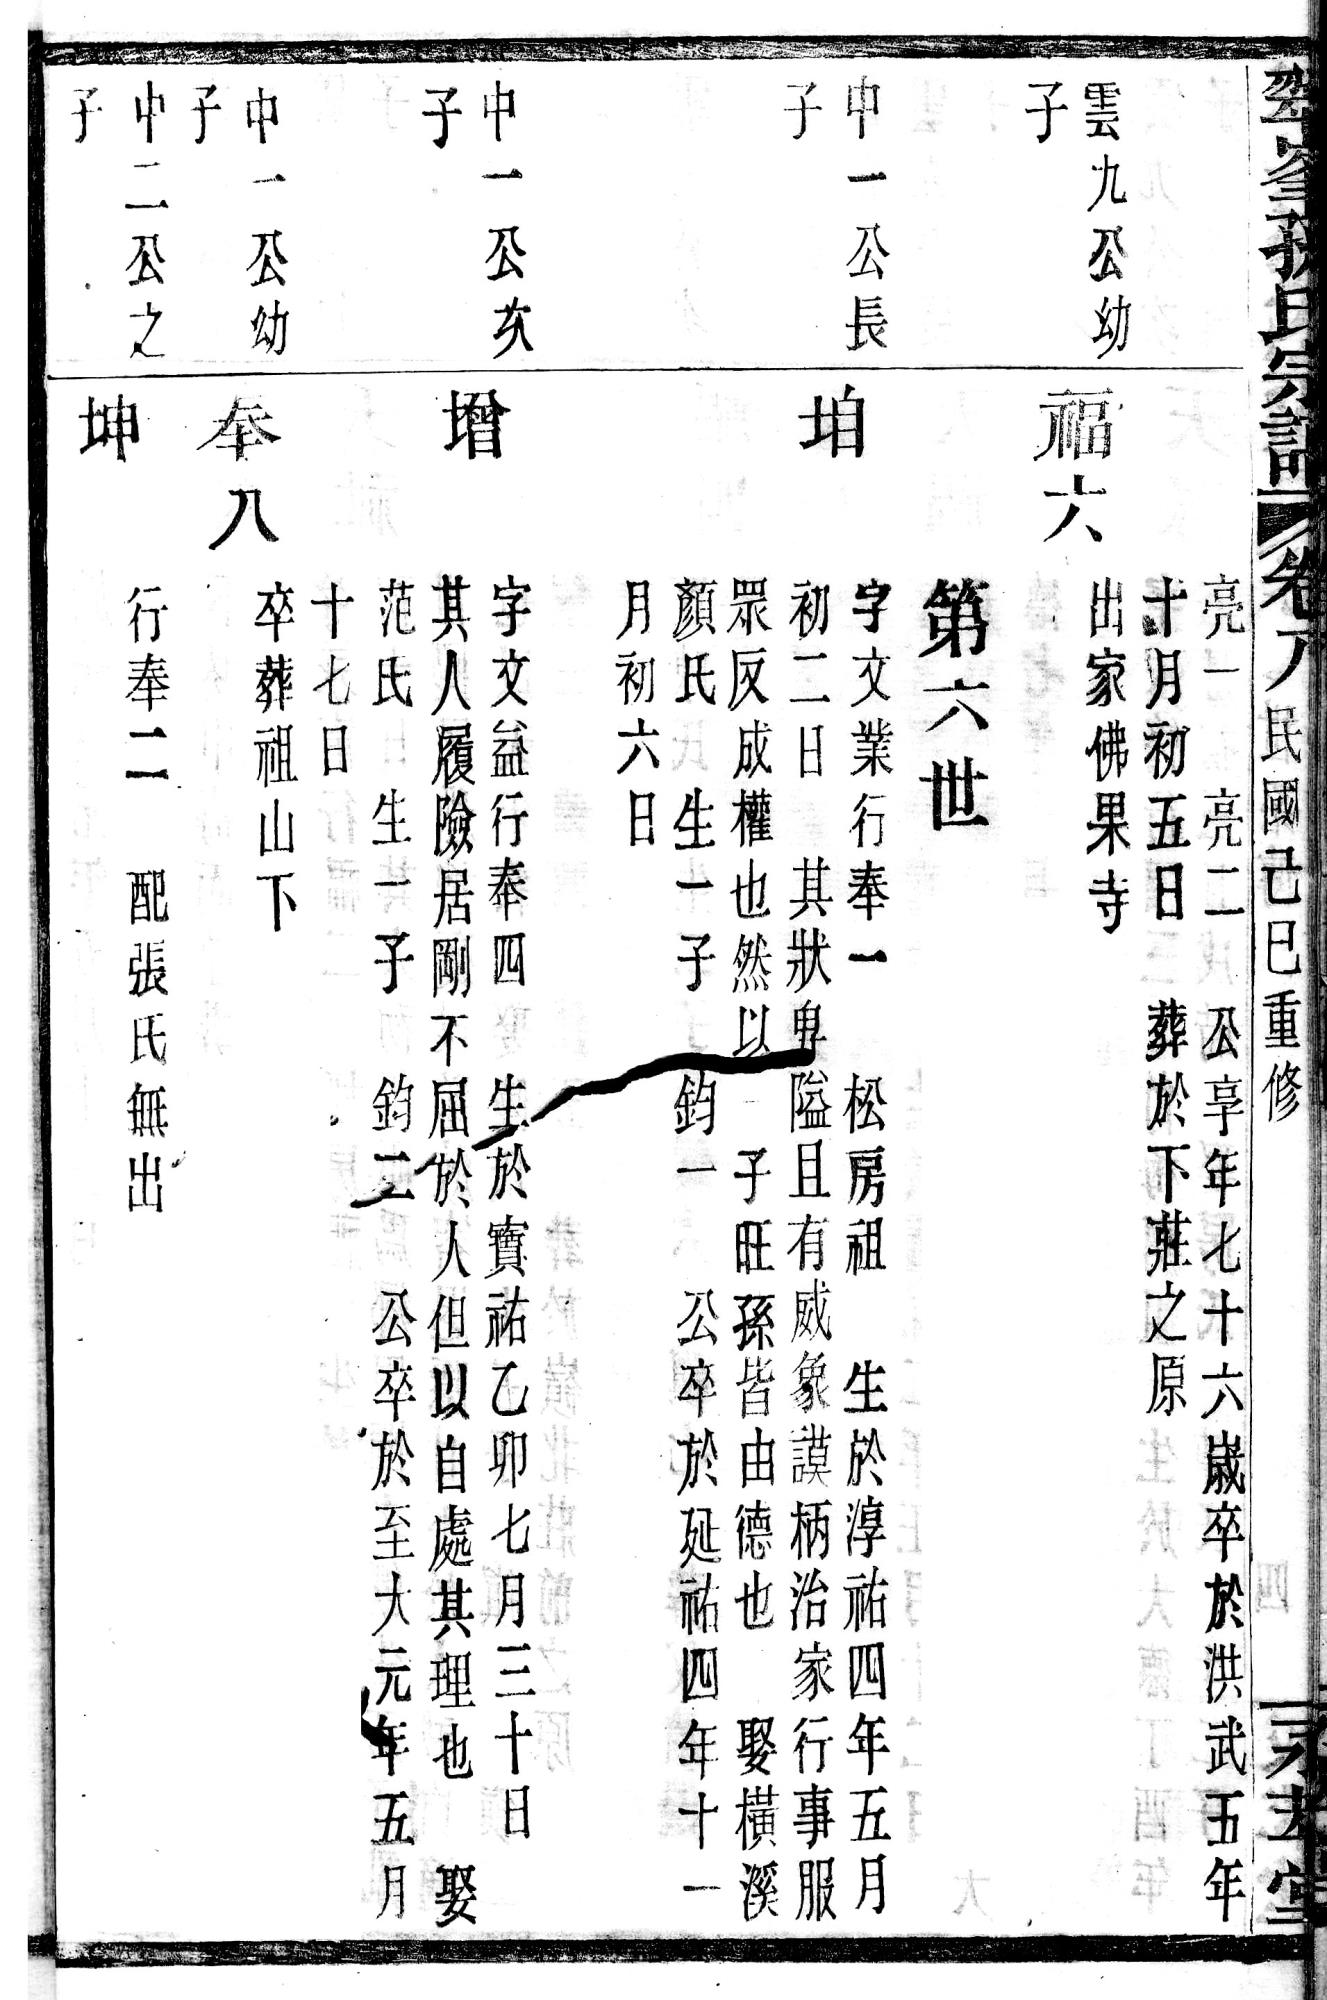 孫氏宗譜 卷八 民國己巳重修
亮一 亮二 公享年七十六歲卒於洪武五年
十月初五日 葬於下莊之原
雲九公幼
子
福六
出家佛果寺
第六世
中一公長
子
珀
字文業行奉一 松房祖 生於淳祐四年五月
初二日 其狀卑隘且有威象謨柄治家行事服
眾反成權也然以 子旺孫皆由德也 娶橫溪
顏氏 生一子 鈞一 公卒於延祐四年十一
月初六日
中一公次
子
增
字文益行奉四 生於寶祐乙卯七月三十日
其人履險居剛不屈於人但以自處其理也 娶
范氏 生一子 鈞二 公卒於至大元年五月
十七日
中一公幼
子
奉八
卒葬祖山下
中二公之
子
坤
行奉二 配張氏無出